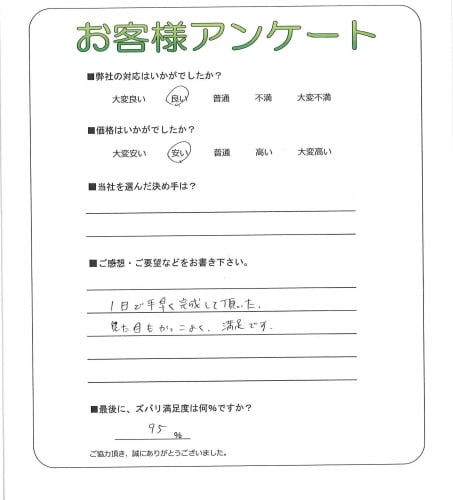 お客様アンケート
■弊社の対応はいかがでしたか？
大変良い 良い 普通 不満 大変不満
■価格はいかがでしたか？
大変安い 安い 普通 高い 大変高い
■当社を選んだ決め手は？
■ご感想・ご要望などをお書き下さい。
1日で手早く完成して頂いた。
見た目もかっこよく、満足です。
■最後に、ズバリ満足度は何%ですか？
95 %
ご協力頂き、誠にありがとうございました。